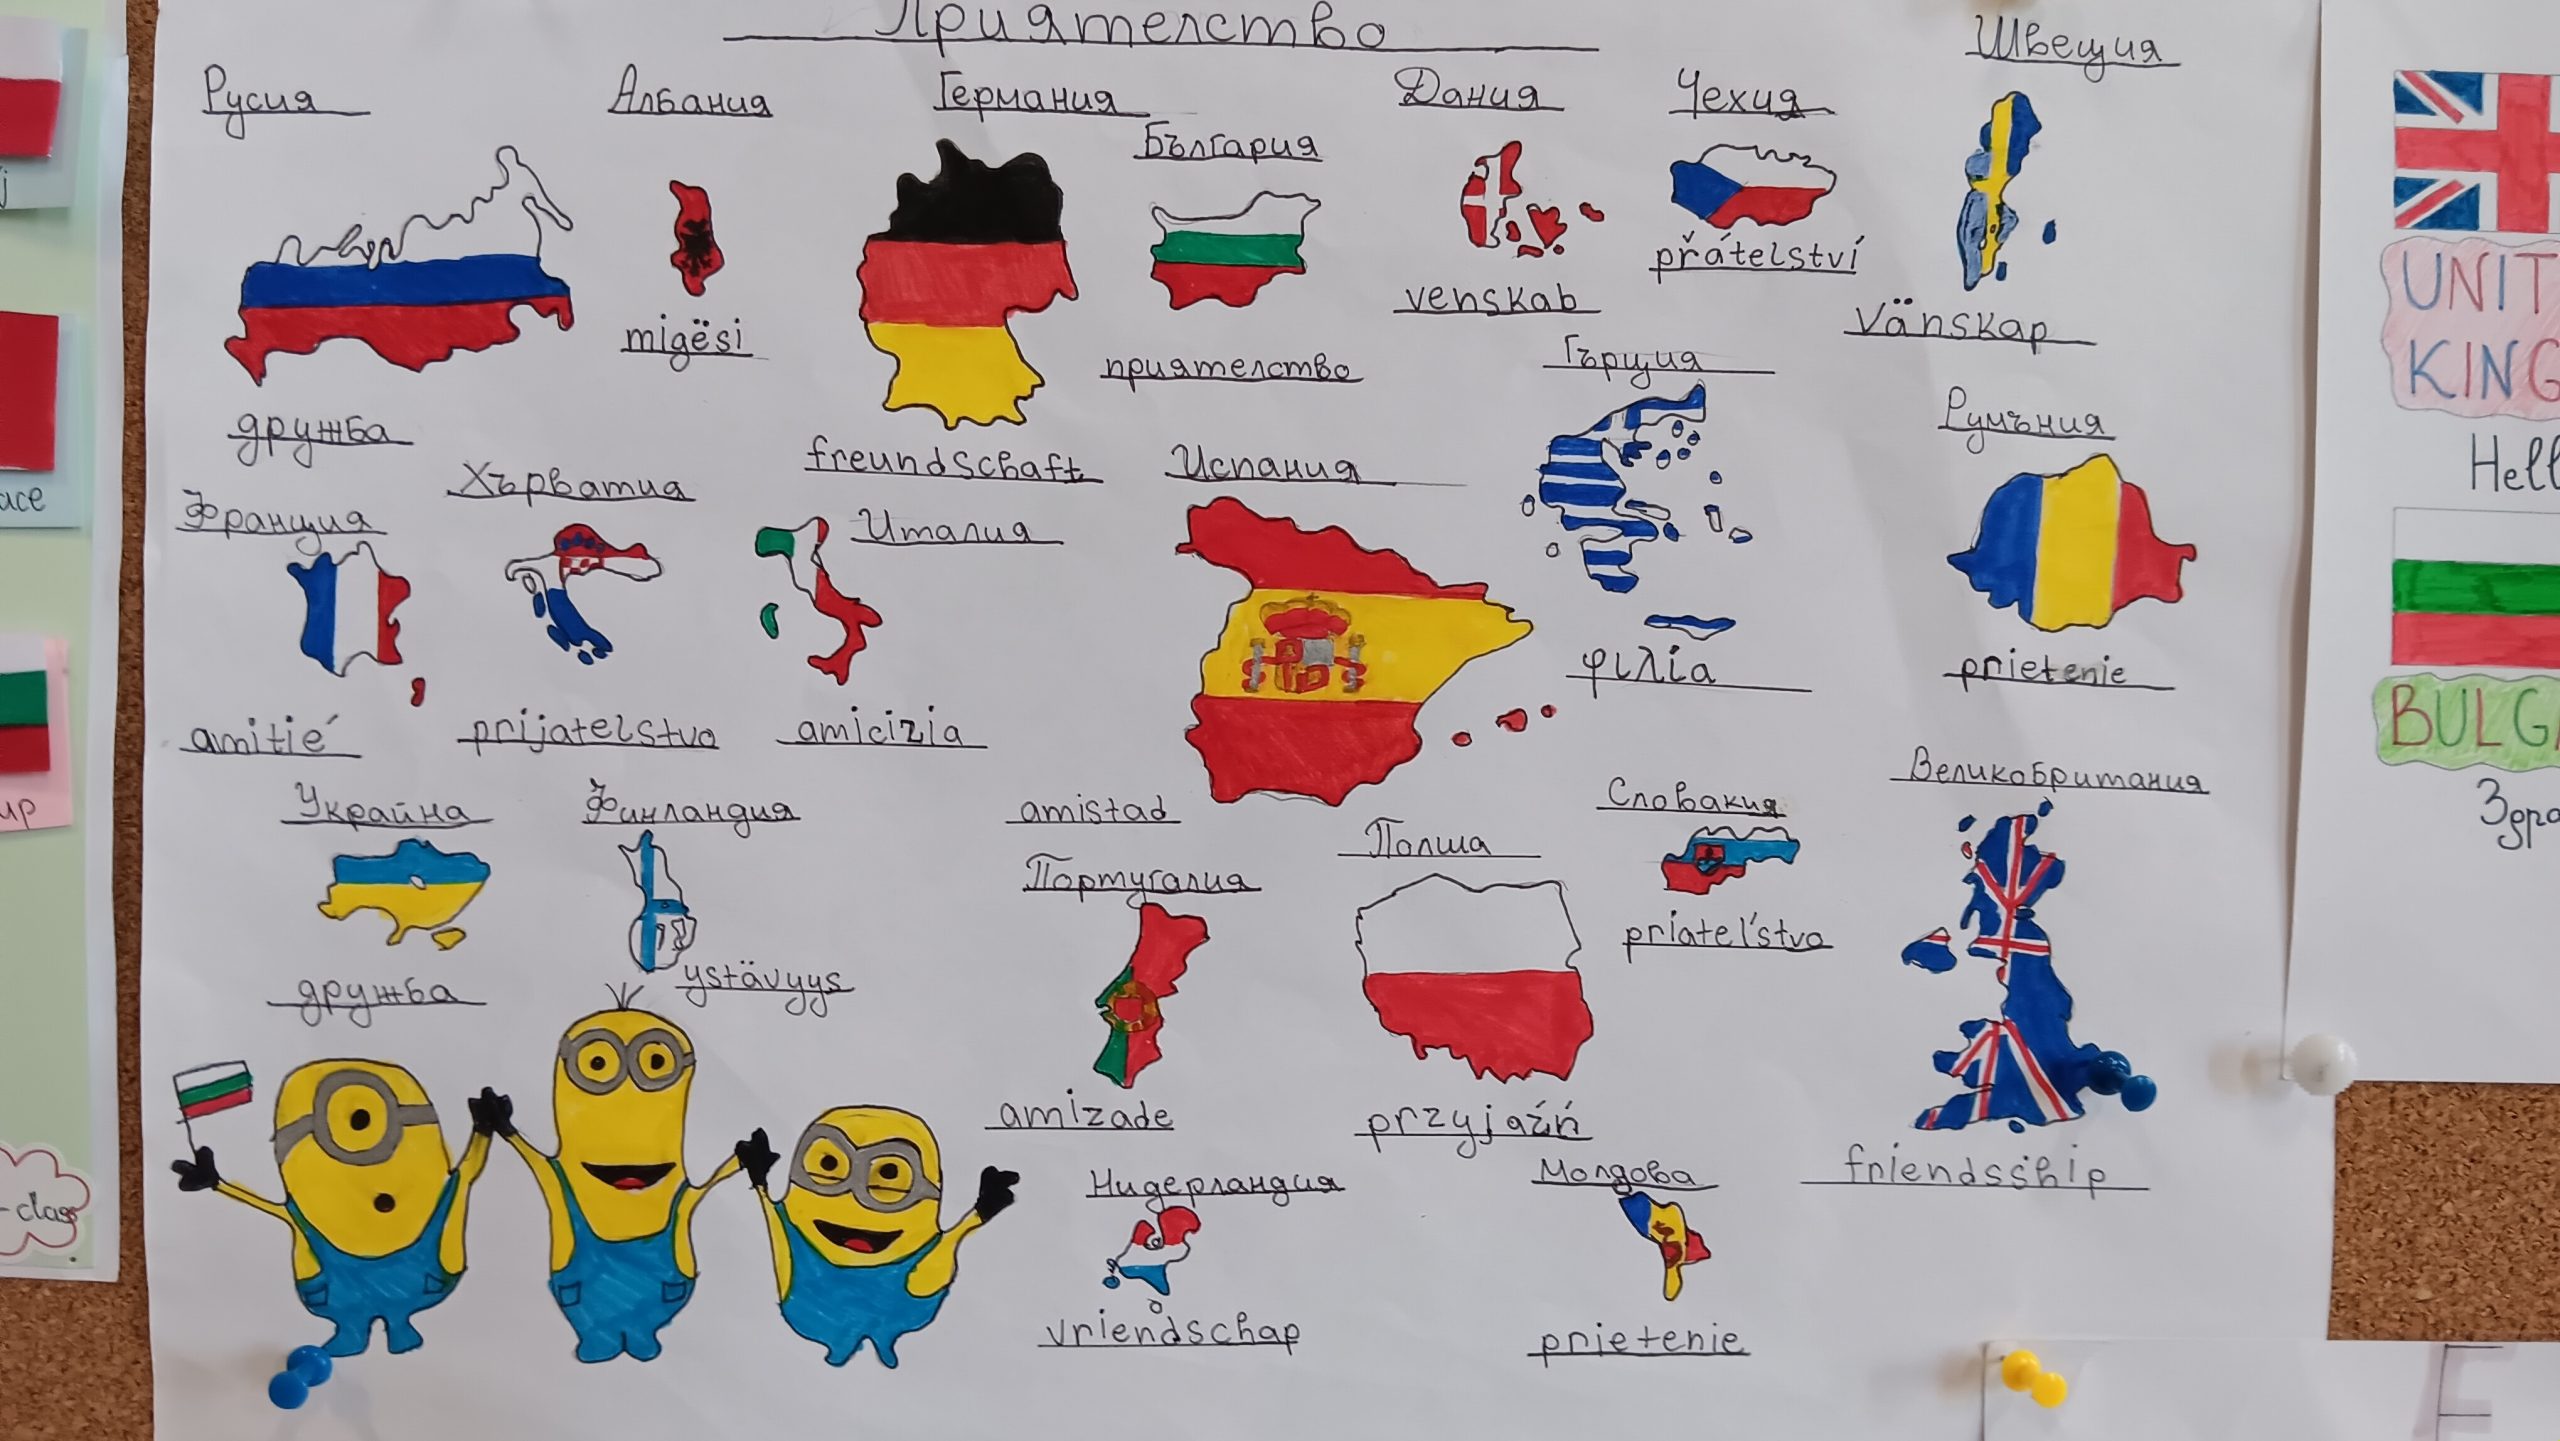 Приятелство
Русия
Албания
Германия
България
Дания
Чехия
Швеция
дружба
migësi
freundschaft
приятелство
venskab
přátelství
Vänskap
Франция
Хърватия
Италия
Испания
Гърция
Румъния
amitié
prijatelstvo
amicizia
amistad
φιλία
prietenie
Украйна
Финландия
Португалия
Полша
Словакия
Великобритания
дружба
ystävyys
amizade
przyjaźń
priateľstvo
friendsship
Нидерландия
Молдова
vriendschap
prietenie
UNIT
KING
Hell
BULGA
Здра
ace
up
-class